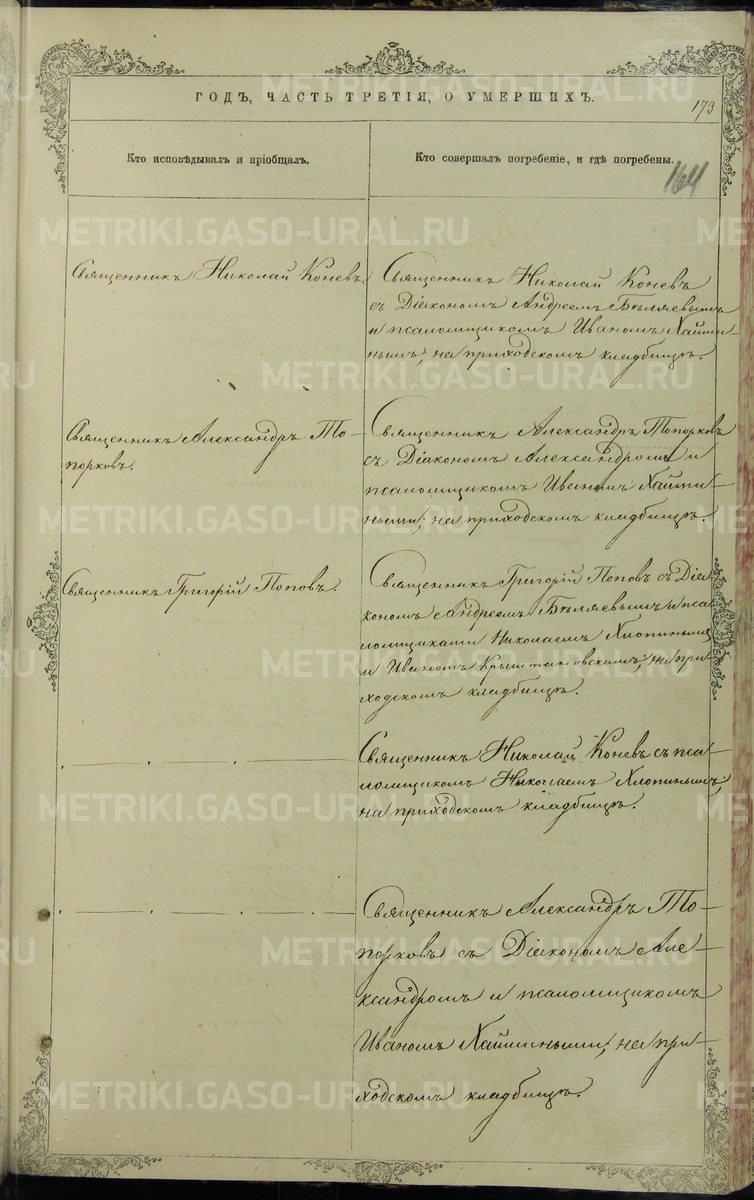 ГОДЪ, ЧАСТЬ ТРЕТІЯ, О УМЕРШИХЪ.
173
Кто исповѣдывалъ и пріобщалъ.
Кто совершалъ погребеніе, и гдѣ погребены.
164
Священникъ Николай Коневъ.
Священникъ Николай Коневъ
съ Діакономъ Андреемъ Бѣляевымъ
и псаломщикомъ Иваномъ Хайми-
нымъ, на приходскомъ кладбищѣ.
Священникъ Александръ То-
порковъ.
Священникъ Александръ Топорковъ
съ Діакономъ Александромъ и
псаломщикомъ Иваномъ Хайми-
ными, на приходскомъ кладбищѣ.
Священникъ Григорій Поповъ.
Священникъ Григорій Поповъ съ Діа-
кономъ Андреемъ Бѣляевымъ и пса-
ломщиками Николаемъ Хлопинымъ
и Иваномъ Крыштановскимъ, на при-
ходскомъ кладбищѣ.
Священникъ Николай Коневъ съ пса-
ломщикомъ Николаемъ Хлопинымъ,
на приходскомъ кладбищѣ.
Священникъ Александръ То-
порковъ съ Діакономъ Але-
ксандромъ и псаломщикомъ
Иваномъ Хайми­ными, на при-
ходскомъ кладбищѣ.
METRIKI.GASO-URAL.RU